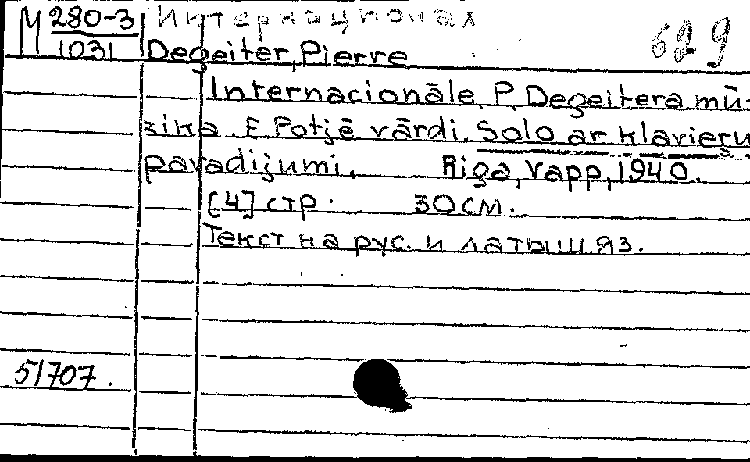 М 280-3 Интернационал
1031 Degeiter, Pierre 629
Internacionāle. P. Degeitera mū-
zika. E. Potjē vārdi. Solo ar klavieru
pavadijumi. Riga, Vapp, 1940.
[4] стр. 30 см.
Текст на рус. и латыш. яз.
51707.